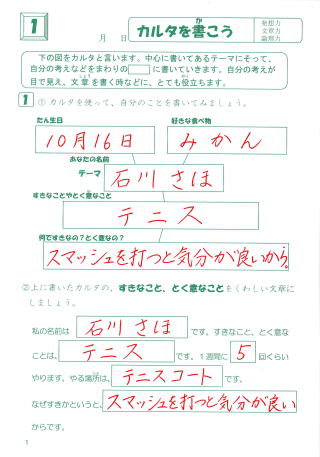 1
月 日
カルタを書こう
発想力
文章力
論理力
下の図をカルタと言います。中心に書いてあるテーマにそって、
自分の考えなどをまわりの に書いていきます。自分の考えが
目で見え、文章を書く時などに、とても役立ちます。
1 ① カルタを使って、自分のことを書いてみましょう。
たん生日 好きな食べ物
10月16日 みかん
あなたの名前
テーマ 石川さほ
すきなことやとく意なこと
テニス
何ですきなの?とく意なの?
スマッシュを打つと気分が良いから。
②上に書いたカルタの、すきなこと、とく意なことをくわしい文章に
しましょう。
私の名前は 石川さほ です。すきなこと、とく意な
ことは、テニス です。1週間に 5 回くらい
やります。やる場所は、テニスコート です。
なぜすきかというと、スマッシュを打つと気分が良い
からです。
1